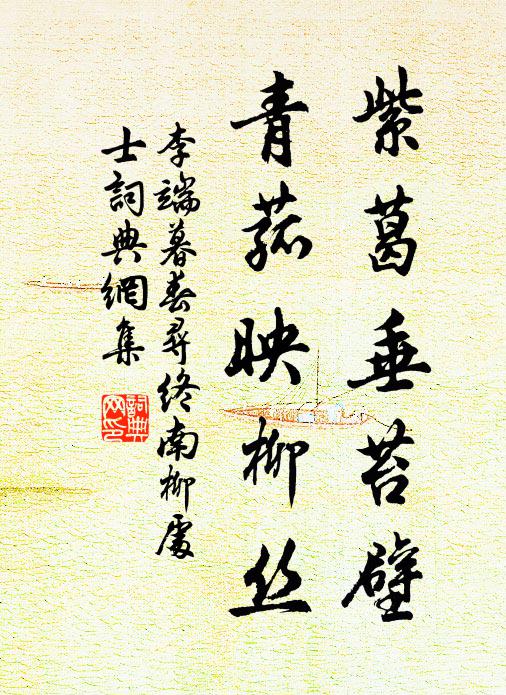 紫葛垂苔壁
青菰映柳丝
李端暮春尋终南柳處
士詞典網集
詞典网印